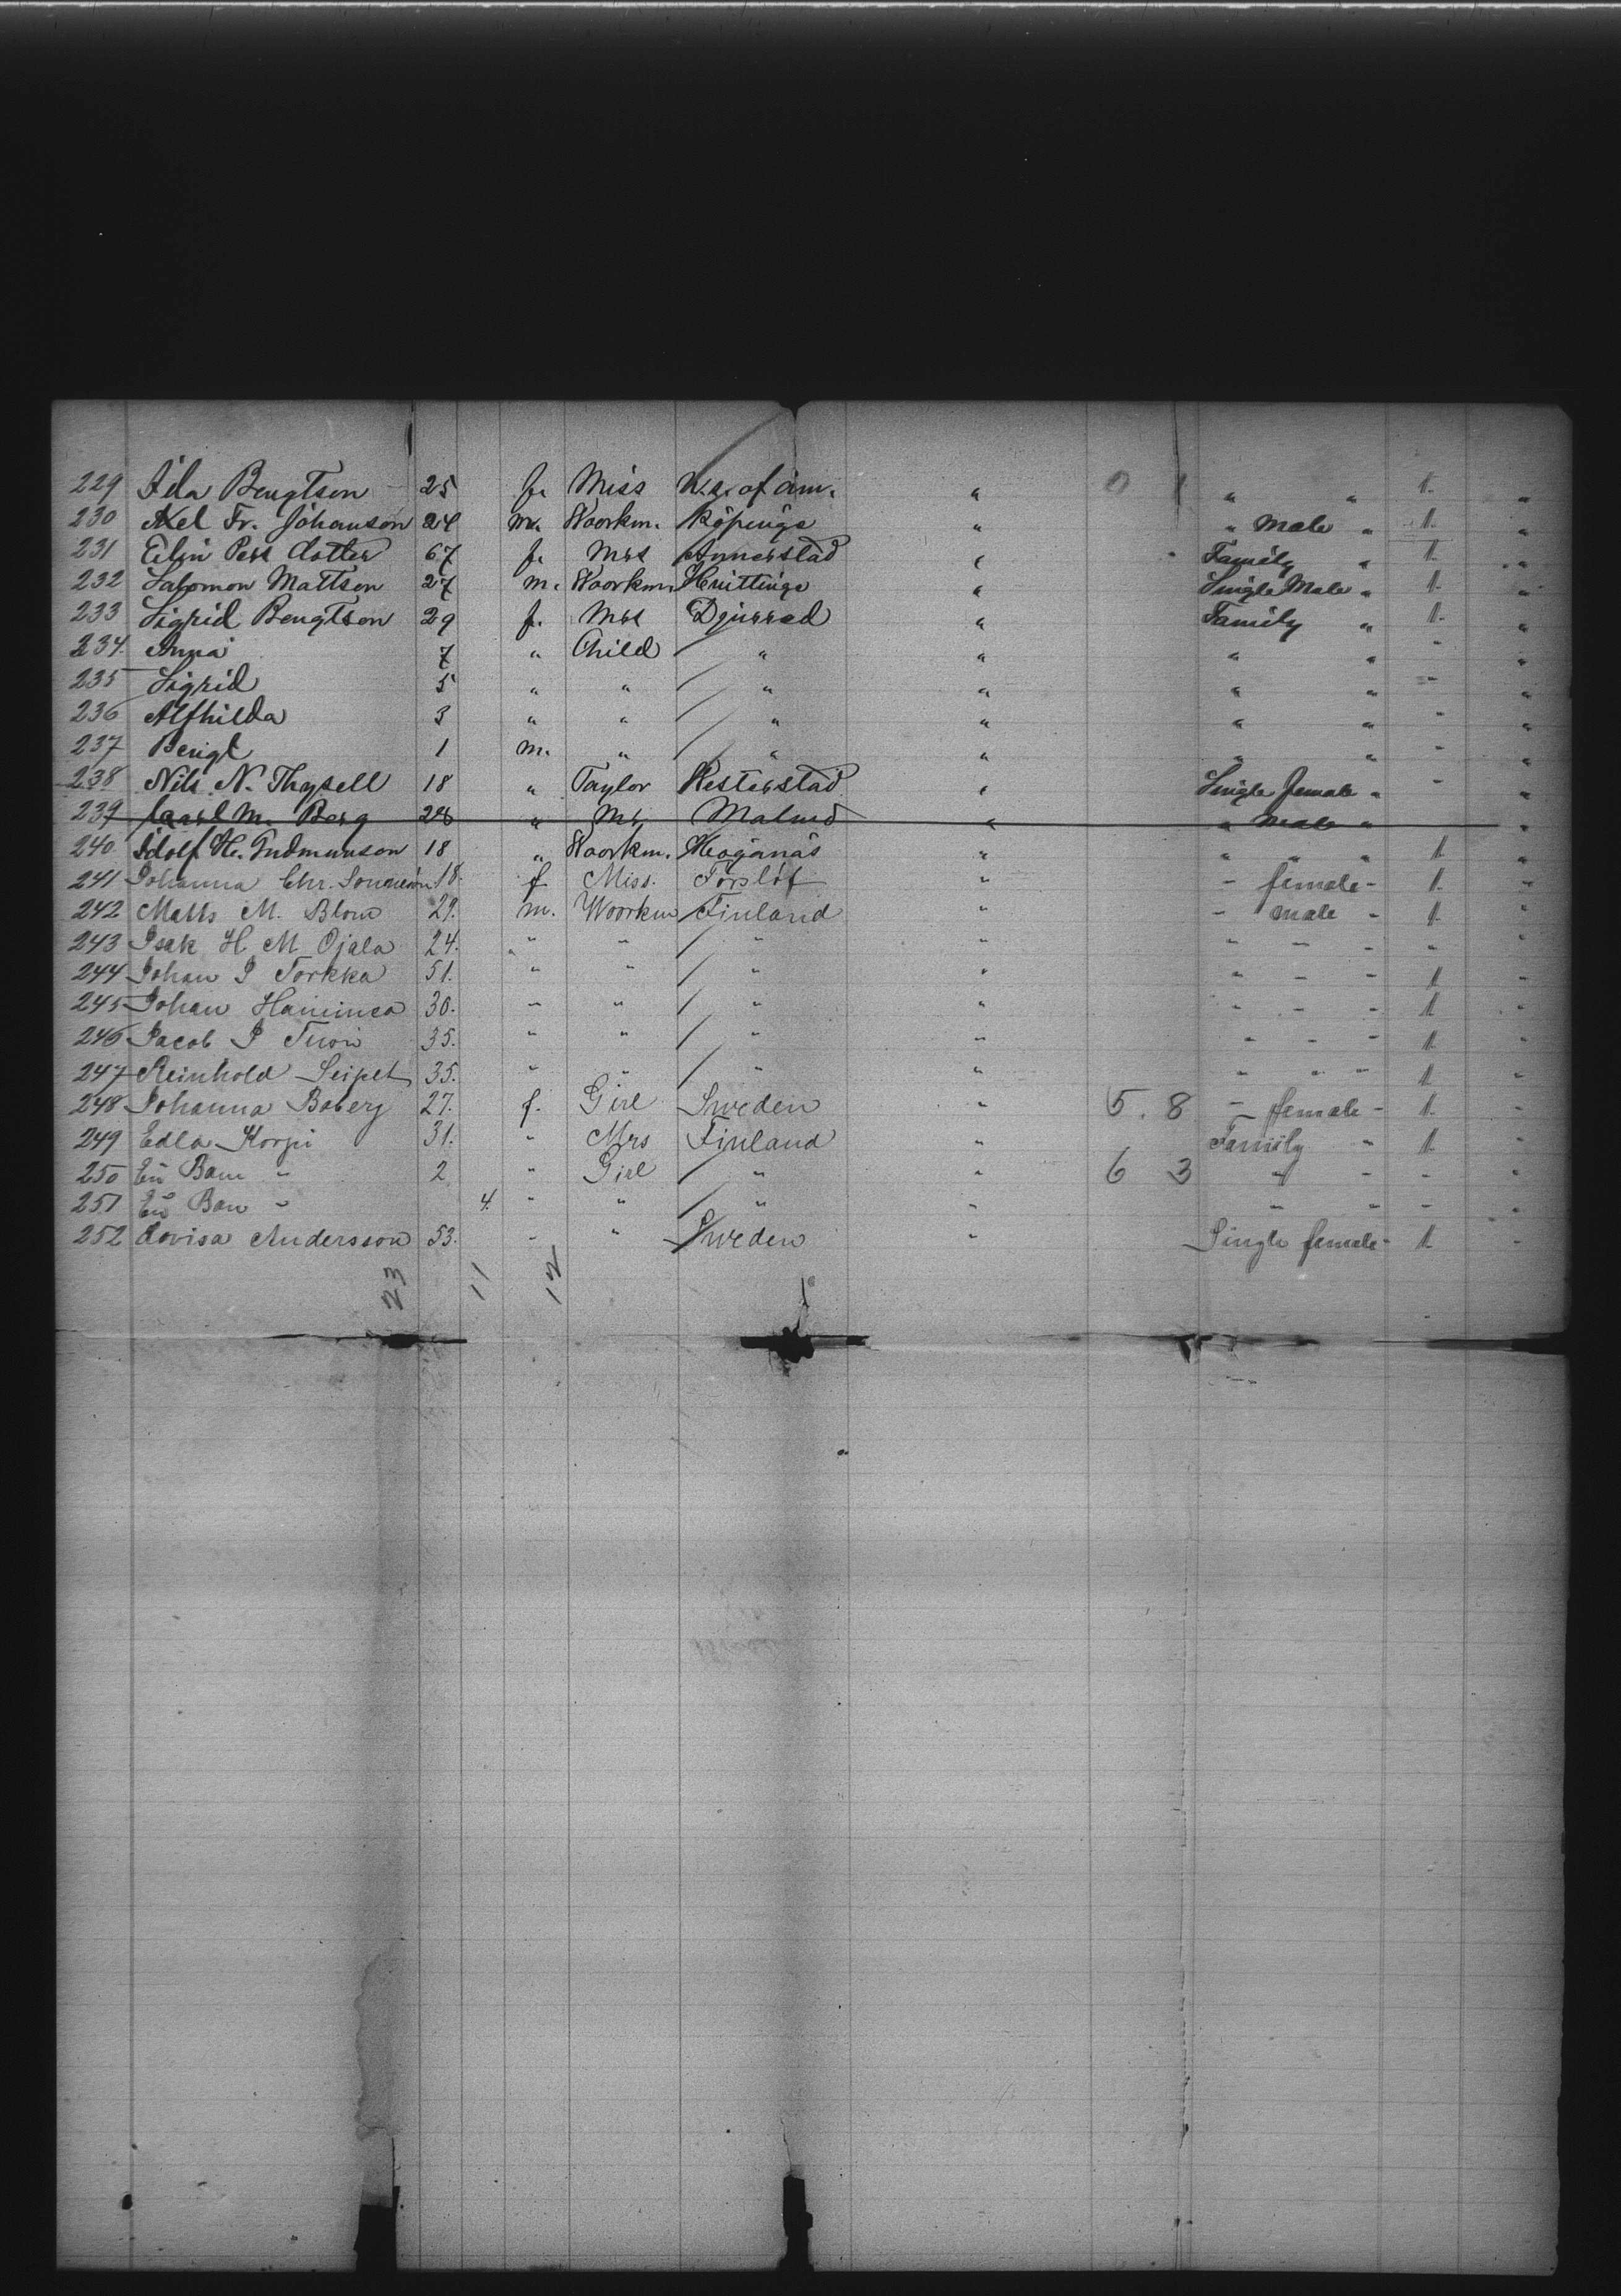 229 Ida Bengtson 25 f. Miss U.S. of am. " 0 1 " " 1. "
230 Axel Fr. Johanson 24 m. Woorkm. Köpinge " " Male " 1. "
231 Elin Pers dotter 67 f. Mrs Annerstad " Family " 1. "
232 Salomon Mattson 27 m. Woorkm. Huittinge " Single Male " 1. "
233 Sigrid Bengtson 29 f. Mrs Djurrad " Family " 1. "
234. Anna 7 " Child " " " " - "
235 Sigrid 5 " " " " " " - "
236 Alfhilda 3 " " " " " " - "
237 Bengt 1 m. " " " " " - "
238 Nils N. Thysell 18 " Taylor Kesterstad " Single female " - "
239 Carl M. Berg 28 " Mr. Malmö " " Male " "
240 Adolf H. Gudmunson 18 " Woorkm. Höganäs " " " " 1. "
241 Johanna Chr. 18. f Miss. Torslöf " - female - 1. "
242 Matts M. Blom 29. m. Woorkm Finland " - male - 1. "
243 Isak H M Ojala 24. " " " " " - - " "
244 Johan J Torkka 51. " " " " " - - 1 "
245 Johan 30. " " " " " - - 1 "
246 Jacob J 35. " " " " " - - 1 "
247 Reinhold 35. " " " " " " " 1 "
248 Johanna Boberg 27. f. Girl Sweden " 5. 8 - female - 1. "
249 Edla Korpi 31. " Mrs Finland " Family " 1. "
250 Barn " 2 " Girl " " 6 3 " - - "
251 " 4. " " " " " " - "
252 Lovisa Andersson 53. " " Sweden " Single female - 1. "
23 11 12